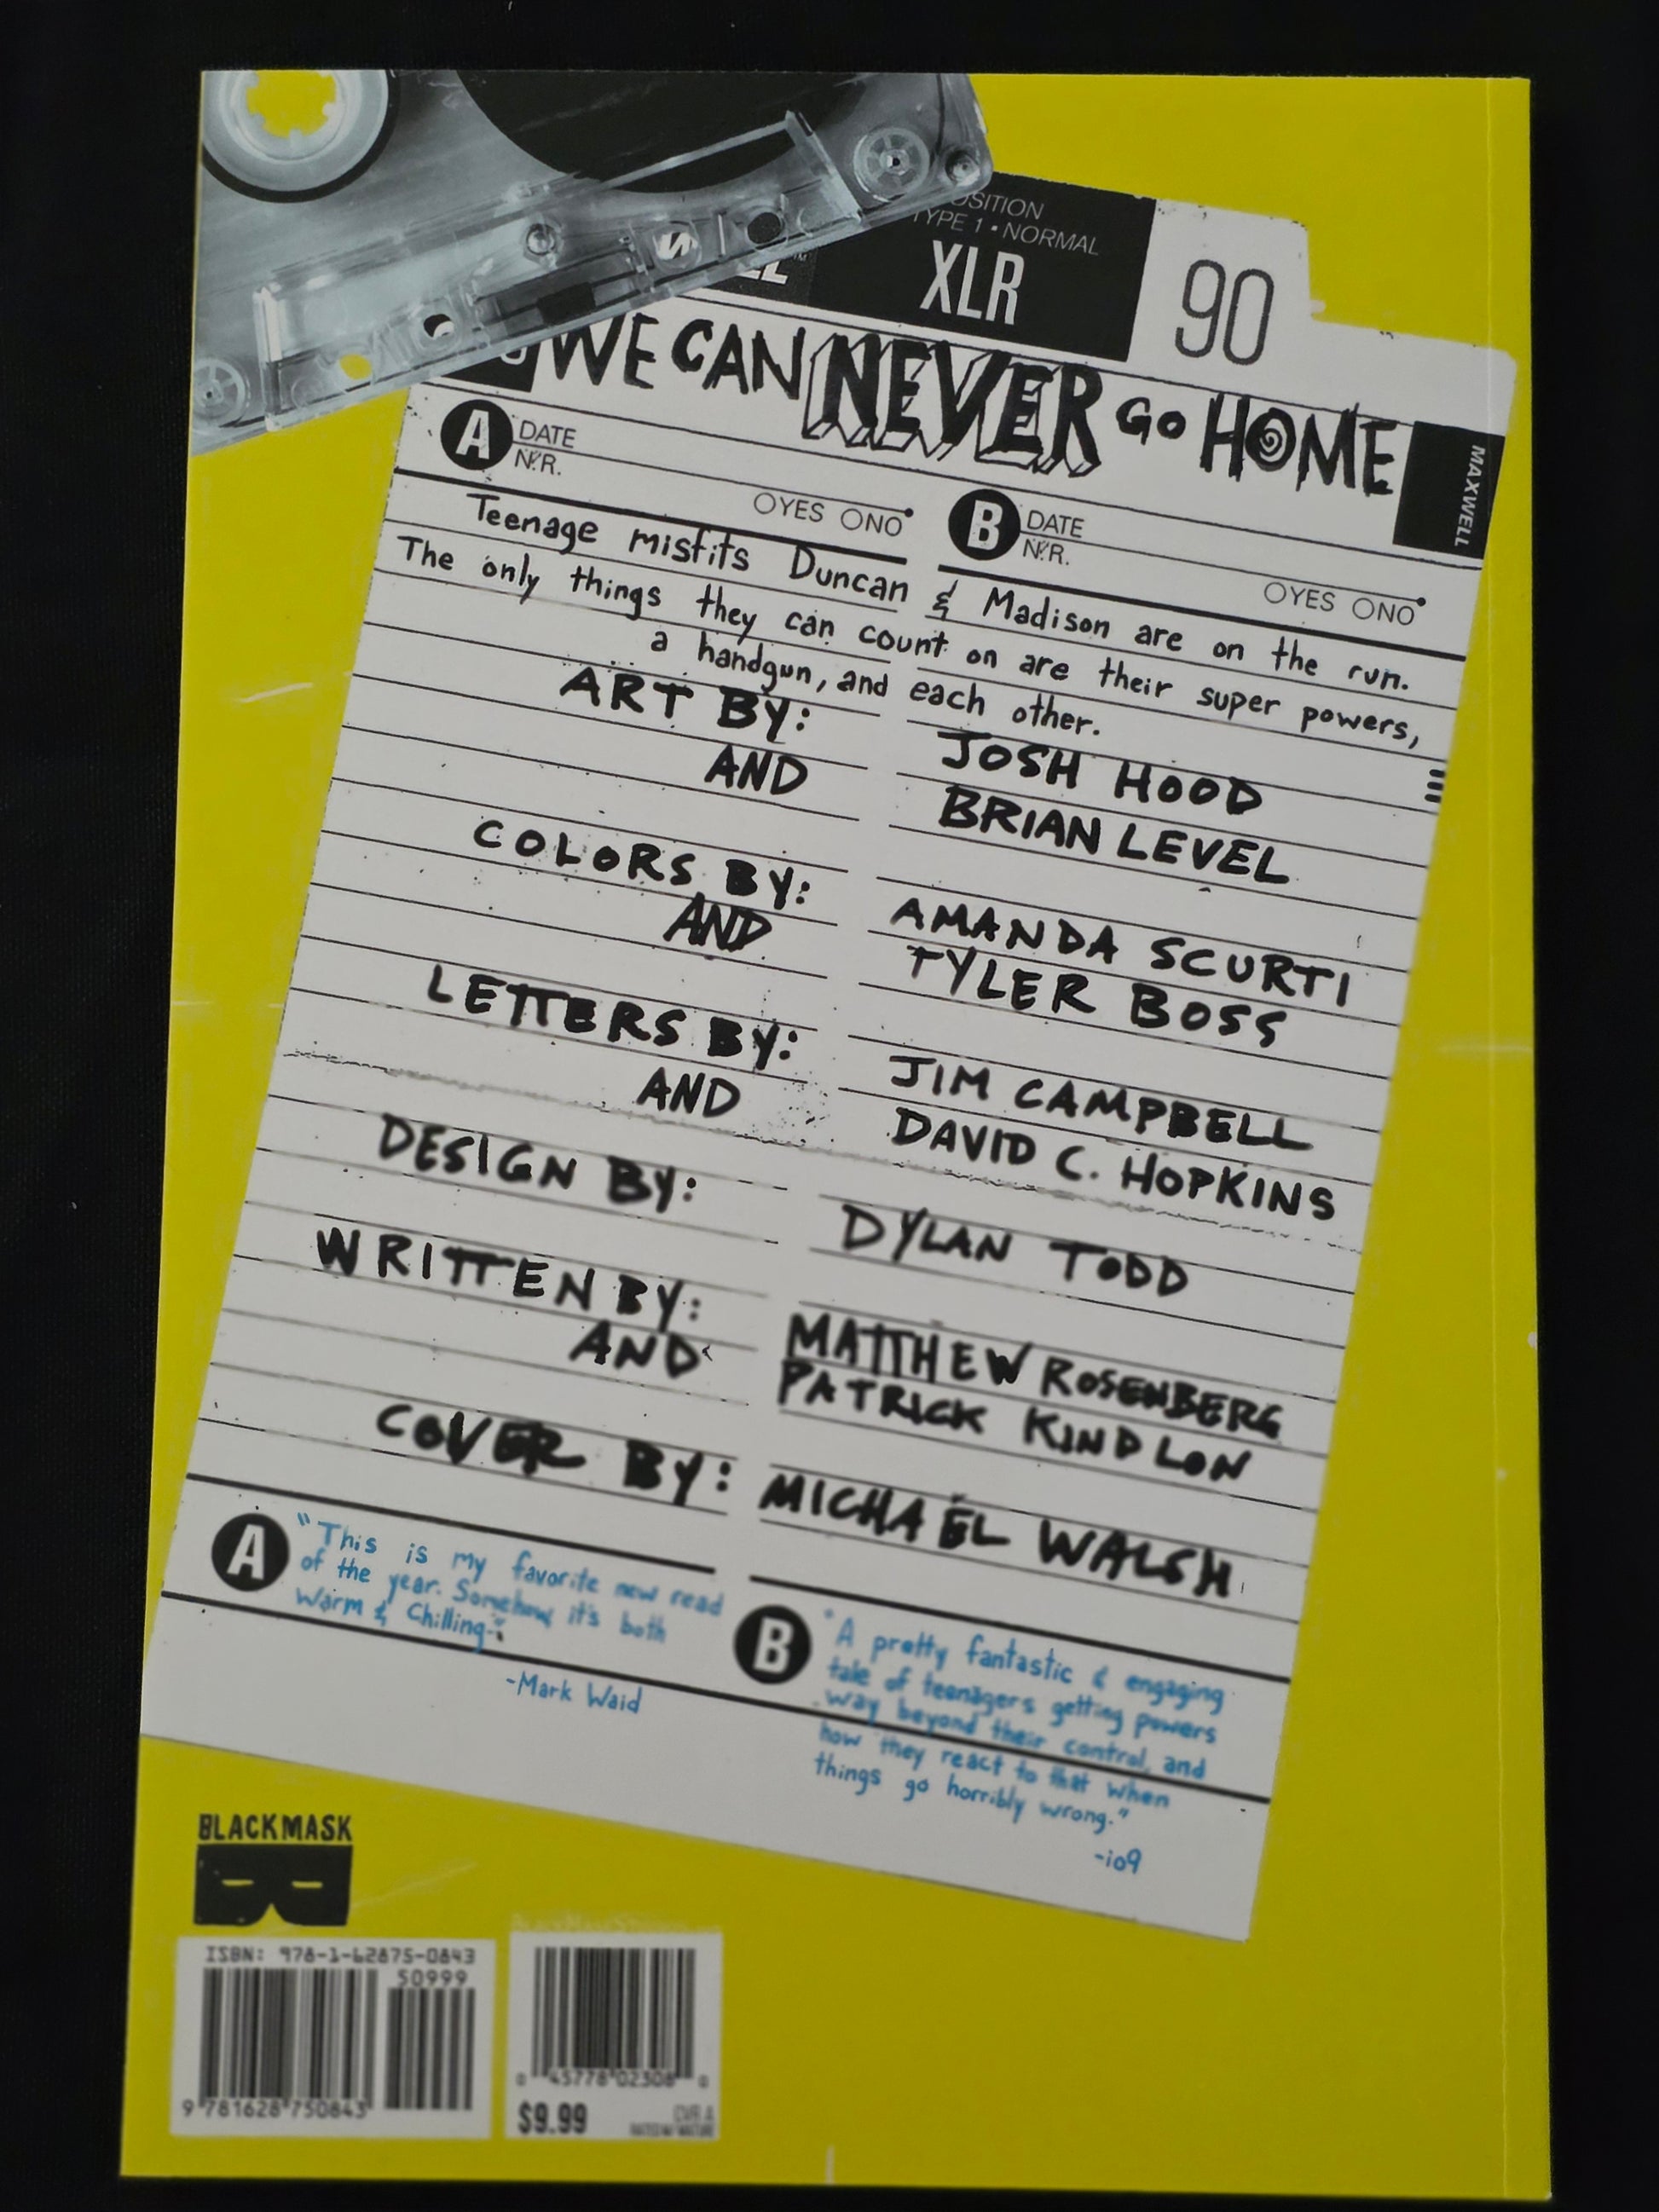 OSITION
TYPE 1 • NORMAL
XLR
90
WE CAN NEVER GO HOME
MAXWELL
A DATE
N.R.
YES NO
B DATE
N.R.
YES NO
Teenage misfits Duncan & Madison are on the run.
The only things they can count on are their super powers,
a handgun, and each other.
ART BY: JOSH HOOD
AND BRIAN LEVEL
COLORS BY: AMANDA SCURTI
AND TYLER BOSS
LETTERS BY: JIM CAMPBELL
AND DAVID C. HOPKINS
DESIGN BY: DYLAN TODD
WRITTEN BY: MATTHEW ROSENBERG
AND PATRICK KINDLON
COVER BY: MICHAEL WALSH
A
"This is my favorite new read
of the year. Somehow it's both
Warm & Chilling."
-Mark Waid
B
"A pretty fantastic & engaging
tale of teenagers getting powers
way beyond their control, and
how they react to that when
things go horribly wrong."
-io9
BLACK MASK
ISBN: 978-1-62875-0843
50999
9 781628 750843
0 45778 02308 0
$9.99
CVR A